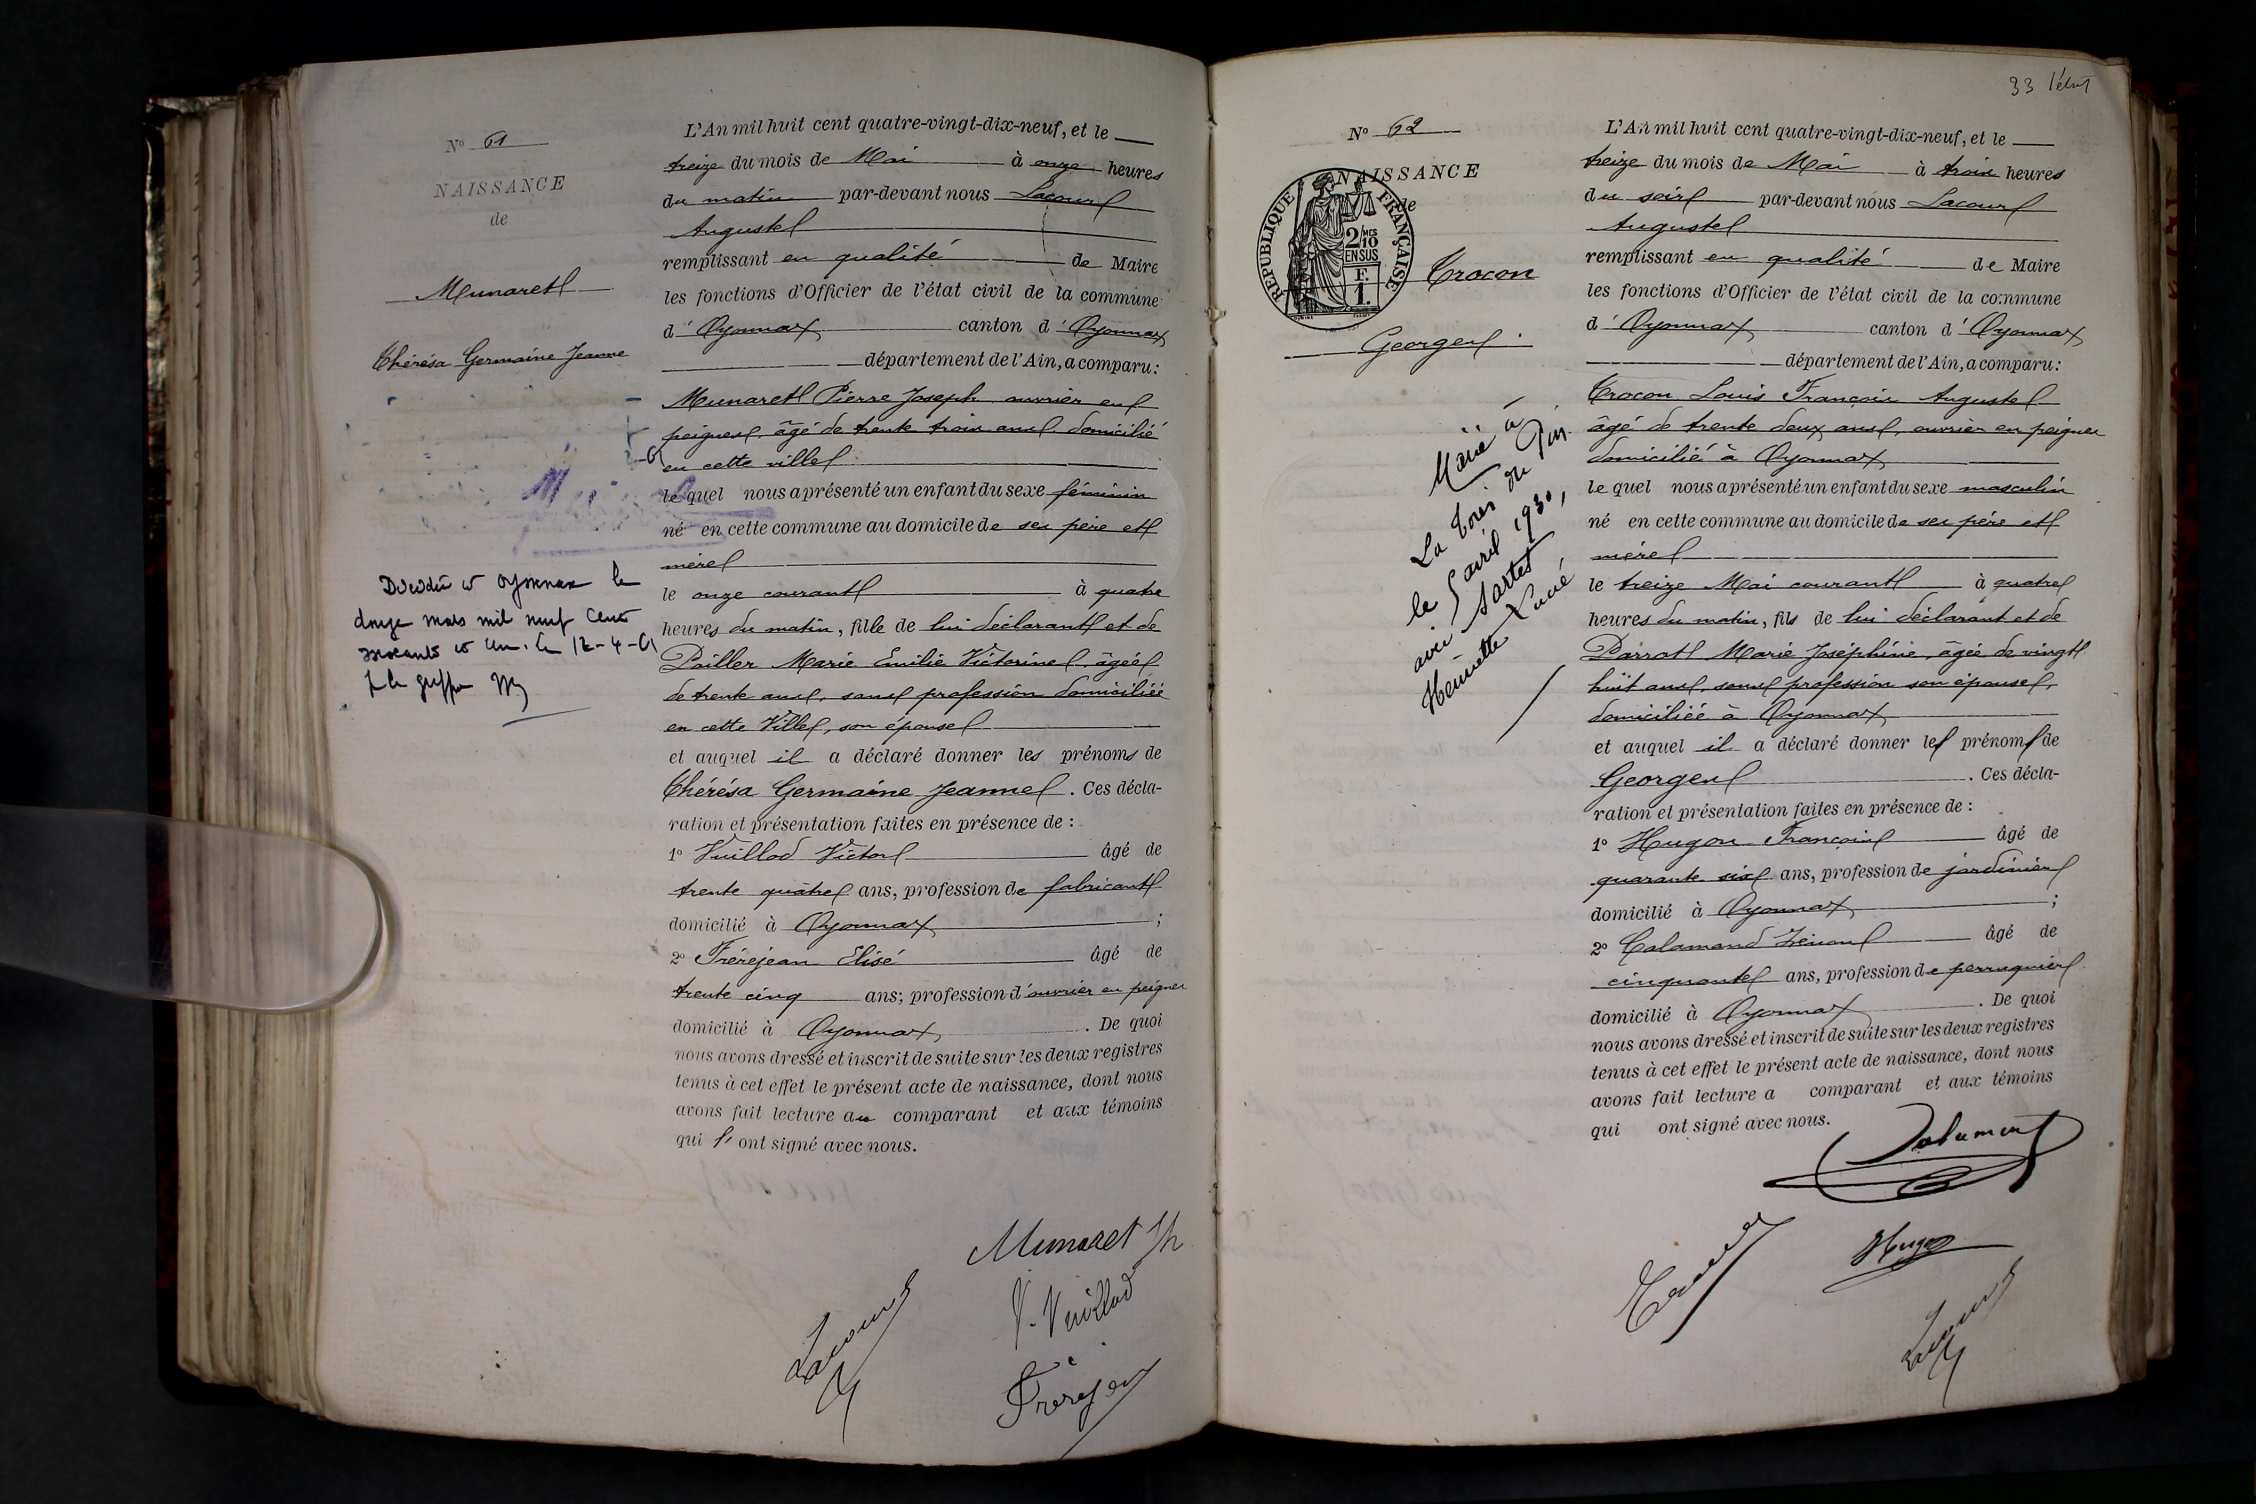 N° 61
NAISSANCE
de
Munaret
Thérésa Germaine Jeanne
Décédée à Oyonnax le
douze mars mil neuf cent
soixante et un. Le 12-4-61
L'An mil huit cent quatre-vingt-dix-neuf, et le
treize du mois de Mai à onze heures
du matin par-devant nous Lacour
Auguste
remplissant en qualité de Maire
les fonctions d'Officier de l'état civil de la commune
d'Oyonnax canton d'Oyonnax
département de l'Ain, a comparu:
Munaret Pierre Joseph ouvrier en
peignes, âgé de trente trois ans, domicilié
en cette ville
le quel nous a présenté un enfant du sexe féminin
né en cette commune au domicile de ses père et
mère
le onze courant à quatre
heures du matin, fille de lui déclarant et de
Pailler Marie Emilie Victorine, âgée
de trente ans, sans profession domiciliée
en cette Ville, son épouse
et auquel il a déclaré donner les prénoms de
Thérésa Germaine Jeanne. Ces décla-
ration et présentation faites en présence de :
1° Vuillod Victor âgé de
trente quatre ans, profession de fabricant
domicilié à Oyonnax ;
2° Frèrejean Elisé âgé de
trente cinq ans; profession d'ouvrier en peignes
domicilié à Oyonnax . De quoi
nous avons dressé et inscrit de suite sur les deux registres
tenus à cet effet le présent acte de naissance, dont nous
avons fait lecture au comparant et aux témoins
qui l' ont signé avec nous.
Munaret
V. Vuillod
Lacour
Frèrejean
33
N° 62
NAISSANCE
de
RÉPUBLIQUE FRANÇAISE
2/10 MES
EN SUS
F.
1.
Crocon
Georges
Marié à
La Tour du Pin
le 5 avril 1930,
avec Sartet
Henriette Lucie
L'An mil huit cent quatre-vingt-dix-neuf, et le
treize du mois de Mai à trois heures
du soir par-devant nous Lacour
Auguste
remplissant en qualité de Maire
les fonctions d'Officier de l'état civil de la commune
d'Oyonnax canton d'Oyonnax
département de l'Ain, a comparu:
Crocon Louis François Auguste
âgé de trente deux ans, ouvrier en peignes
domicilié à Oyonnax
le quel nous a présenté un enfant du sexe masculin
né en cette commune au domicile de ses père et
mère
le treize Mai courant à quatre
heures du matin, fils de lui déclarant et de
Parrot Marie Joséphine, âgée de vingt
huit ans, sans profession son épouse,
domiciliée à Oyonnax
et auquel il a déclaré donner le prénom de
Georges . Ces décla-
ration et présentation faites en présence de :
1° Hugon François âgé de
quarante six ans, profession de jardinier
domicilié à Oyonnax ;
2° Calamand âgé de
cinquante ans, profession de perruquier
domicilié à Oyonnax . De quoi
nous avons dressé et inscrit de suite sur les deux registres
tenus à cet effet le présent acte de naissance, dont nous
avons fait lecture a comparant et aux témoins
qui ont signé avec nous.
Hugon
Lacour